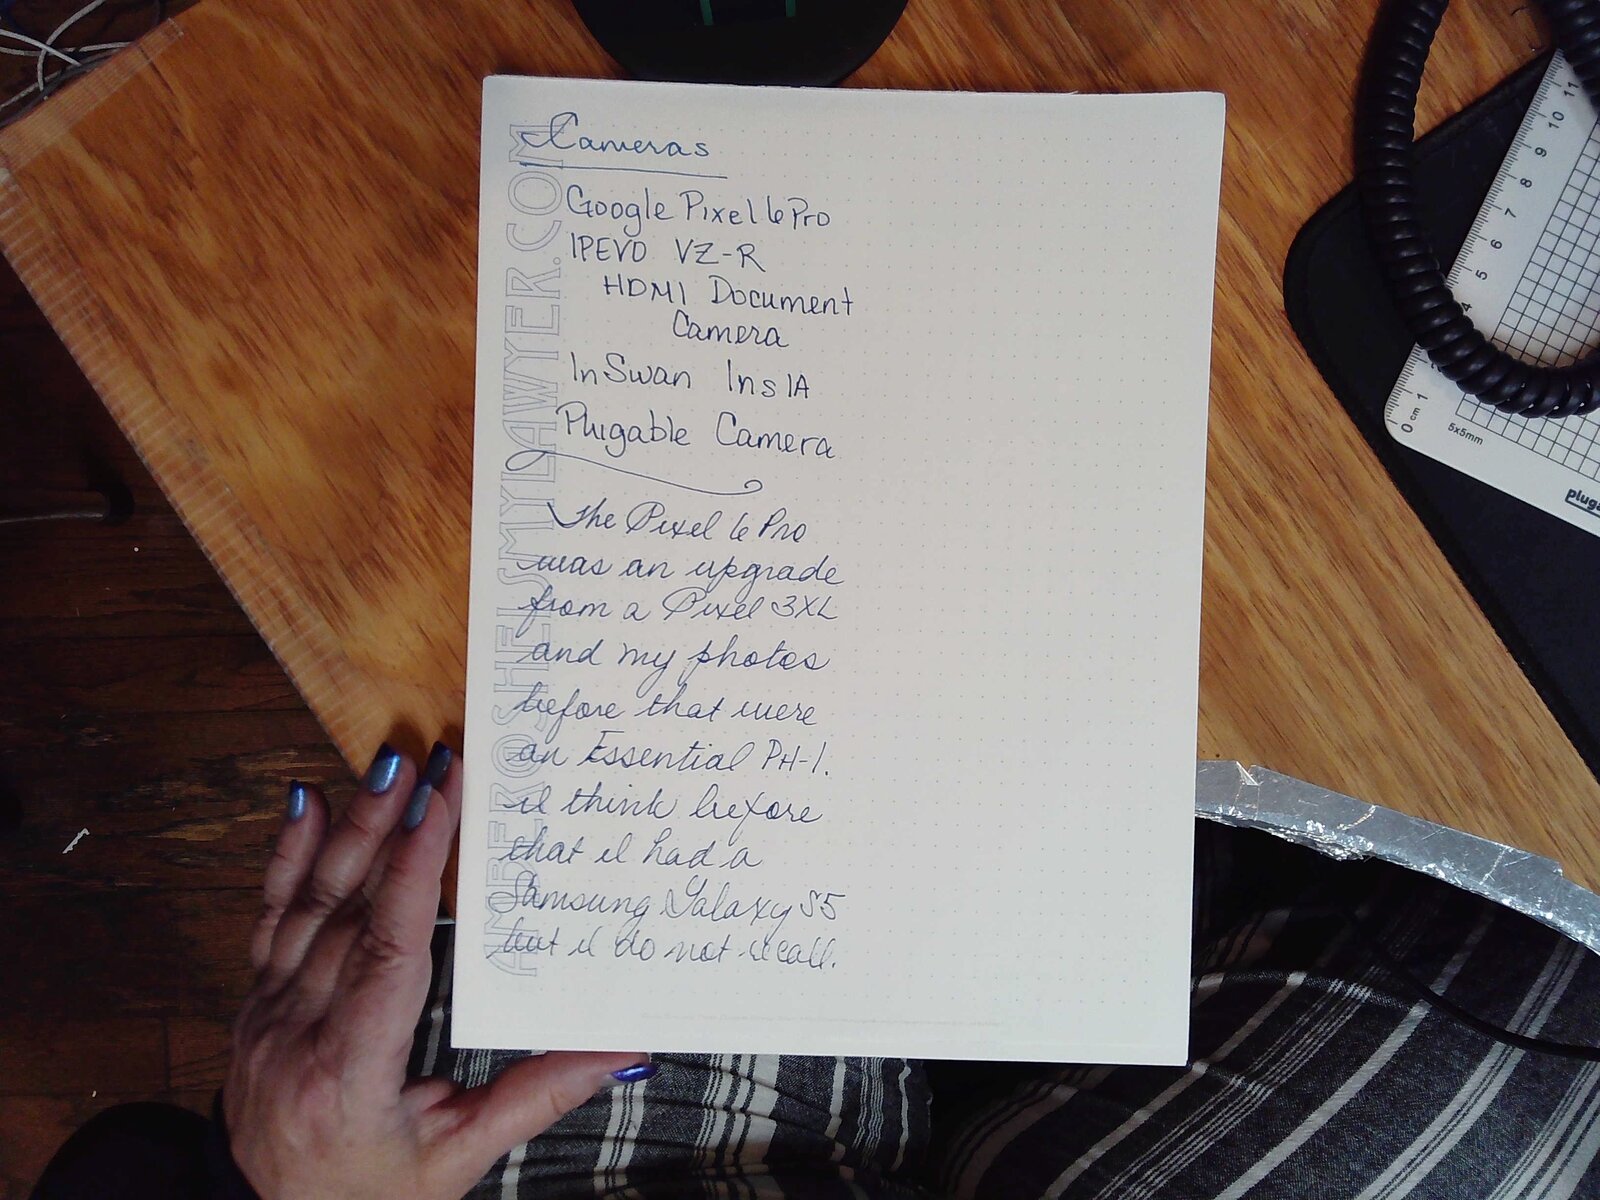 Cameras
Google Pixel 6 Pro
IPEVO VZ-R
HDMI Document
Camera
InSwan Ins 1A
Plugable Camera
The Pixel 6 Pro
was an upgrade
from a Pixel 3XL
and my photos
before that were
an Essential PH-1.
I think before
that I had a
Samsung Galaxy S5
but I do not recall.
AMBER@SHELSMYLAWYER.COM
11
10
9
8
7
6
5
4
1
0 cm
5x5mm
pluga